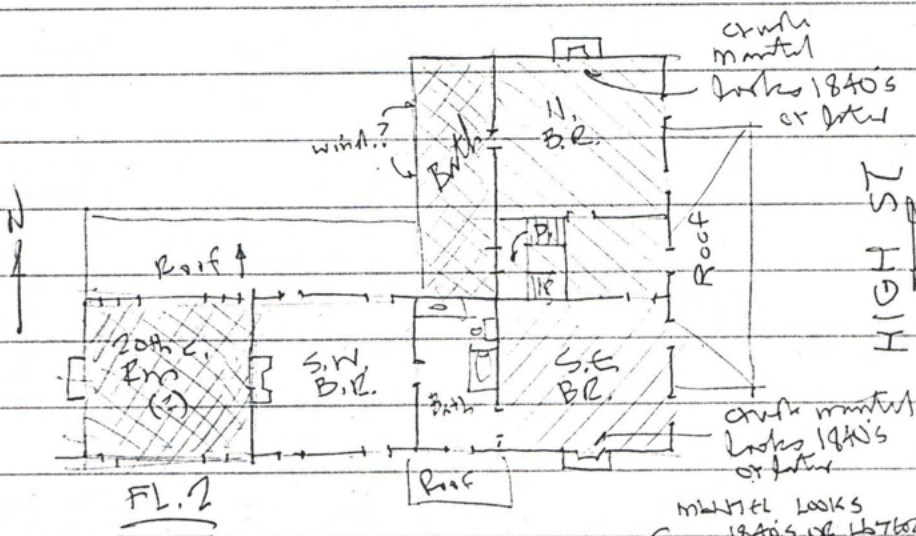 crude
mantel
looks 1840's
or later
N.
B.R.
wind.?
Bath
N
Roof
HIGH ST
Roof
Dn
UP
20th C.
Rm
(?)
S.W.
B.R.
Bath
S.E.
B.R.
crude mantel
looks 1840's
or later
Roof
FL. 2
MANTEL LOOKS
1840'S OR LATER